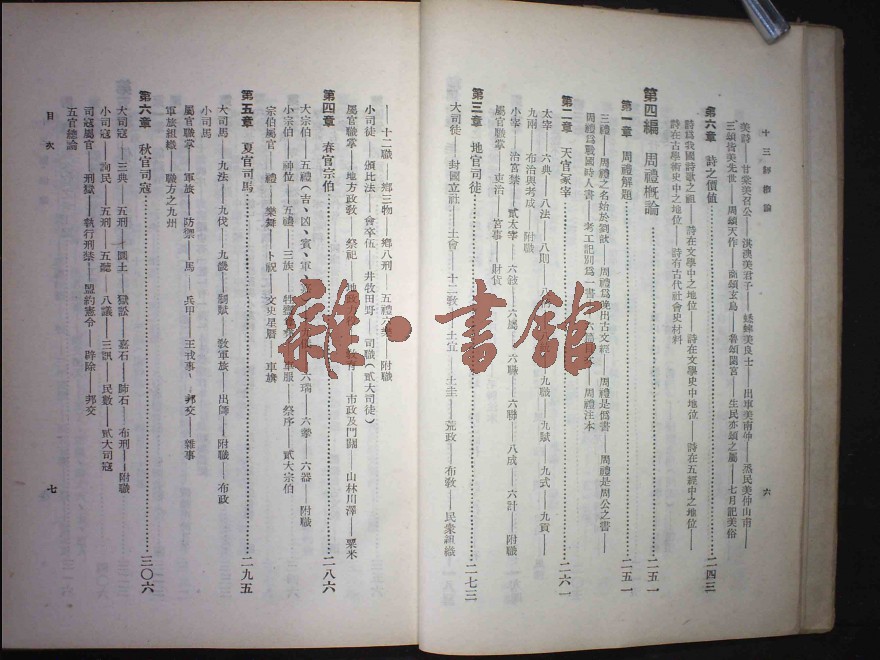 十三經概論
六
美詩——甘棠美召公——淇澳美君子——蟋蟀美良士——出車美南仲——烝民美仲山甫——
三頌皆美先世——周頌天作——商頌玄鳥——魯頌閟宮——生民亦頌之屬——七月記美俗
第六章 詩之價値……二四三
詩爲我國詩歌之祖——詩在文學中之地位——詩在文學史中地位——詩在五經中之地位——
詩在古學術史中之地位——詩有古代社會史材料
第四編 周禮概論……二五一
第一章 周禮解題……二五一
三禮——周禮之名始於劉歆——周禮爲晚出古文經——周禮是僞書——周禮是周公之書——
周禮爲戰國時人書——考工記別爲一書——周禮注本
第二章 天官冢宰……二六一
太宰——六典——八法——八則——九職——九賦——九式——九貢——
九兩——布治與考成——附職
小宰——治宮禁——貳太宰——六敍——六屬——六職——六聯——八成——六計——附職
屬官職掌——吏治——宮事——財貨
第三章 地官司徒……二七三
大司徒——封國立社——土會——十二敎——土宜——土圭——荒政——布敎——民衆組織
——十二職——鄉三物——鄉八刑——五禮六樂——附職
小司徒——頒比法——會卒伍——井牧田野——司職(貳大司徒)
屬官職掌——地方政敎——祭祀——市政及門關——山林川澤——粟米
第四章 春官宗伯……二八六
大宗伯——五禮(吉、凶、賓、軍——六瑞——六摯——六器——附職
小宗伯——神位——五禮——三族——車服——祭序——貳大宗伯
宗伯屬官——禮——樂舞——卜祝——文史星曆——車旗
第五章 夏官司馬……二九五
大司馬——九法——九伐——九畿——制賦——敎軍旅——出師——附職——布政
小司馬
屬官職掌——軍旅——防禦——馬——兵甲——王戎事——邦交——雜事
軍旅組織——職方之九州
第六章 秋官司寇……三〇六
大司寇——三典——五刑——圜土——獄訟——嘉石——肺石——布刑——附職
小司寇——詢民——五刑——五聽——八議——三訊——民數——貳大司寇
司寇屬官——刑獄——執行刑禁——盟約憲令——辟除——邦交
五官總論
目次
七
雜·書館